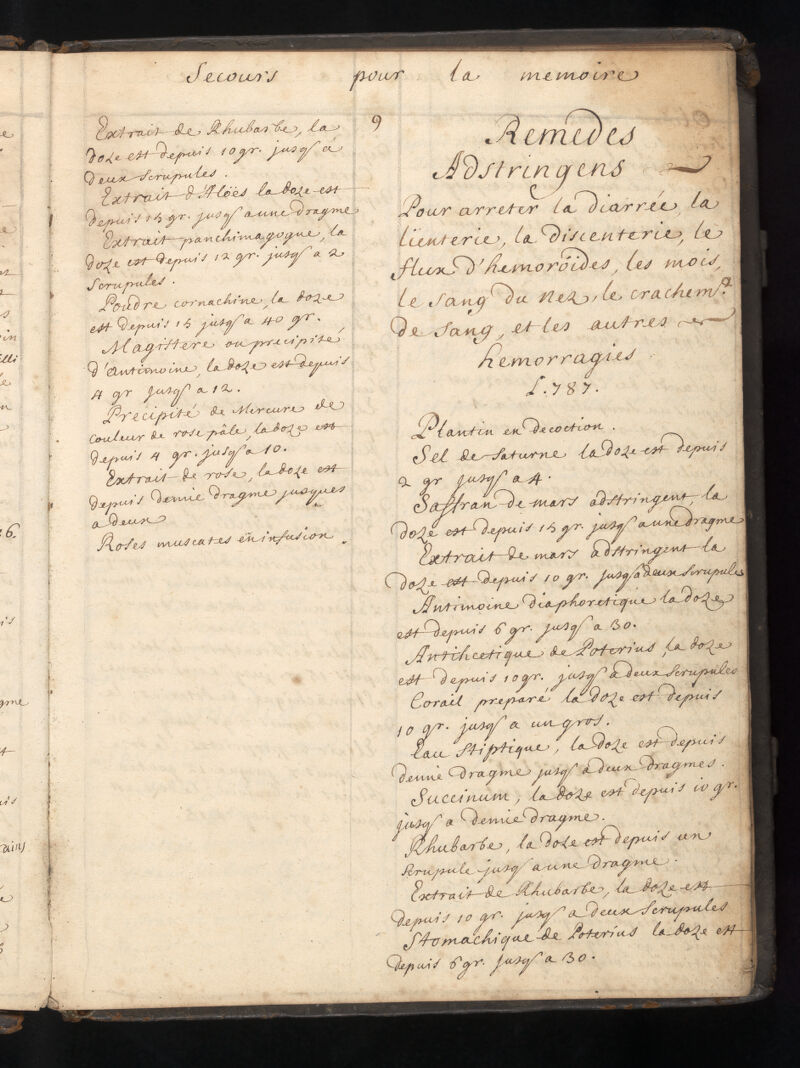 Secours pour la memoire
9
Extrait de Rhubarbe, la
doze est depuis 10 gr. jusqs à
deux scrupules.
Extrait d'Aloës la doze est
depuis 15 gr. jusqs a une dragme
Extrait panchimagogue, la
doze est depuis 12 gr. jusqs a 2
scrupules.
Poudre cornachine, la doze
est depuis 15 jusqs a 40 gr.
Magistere ou precipité
d'Antimoine, la doze est depuis
4 gr jusqs a 12.
Precipité de Mercure de
couleur de rose pâle, la doze est
depuis 4 gr. jusqs a 10.
Extrait de rose, la doze est
depuis demie dragme jusques
a deux
Roses muscates en infusion.
Remedes
Adstringens
Pour arreter la diarrée, la
lienterie, la discenterie, le
flux d'hemoröides, les mois,
le sang du nez, le crachemt
de sang, et les autres
hemorragies
L.787.
Plantin en decoction.
Sel de Saturne la doze est depuis
2 gr jusqs a 4.
Saffran de mars adstringent, la
doze est depuis 15 gr. jusqs a une dragme
Extrait de mars adstringent la
doze est depuis 10 gr. jusqs a deux scrupules
Antimoine diaphoretique la doze
est depuis 6 gr. jusqs a 30.
Antihectique de Poterius, la doze
est depuis 10 gr. jusqs a deux scrupules
Corail preparé la doze est depuis
10 gr. jusqs a un gros.
Eau stiptique, la doze est depuis
demie dragme jusqs a deux dragmes.
Succinum, la doze est depuis 10 gr.
jusqs a demie dragme.
Rhubarbe, la doze est depuis un
scrupule jusqs a une dragme.
Extrait de Rhubarbe, la doze est
depuis 10 gr. jusqs a deux scrupules
Stomachique de Poterius la doze est
depuis 6 gr. jusqs a 30.